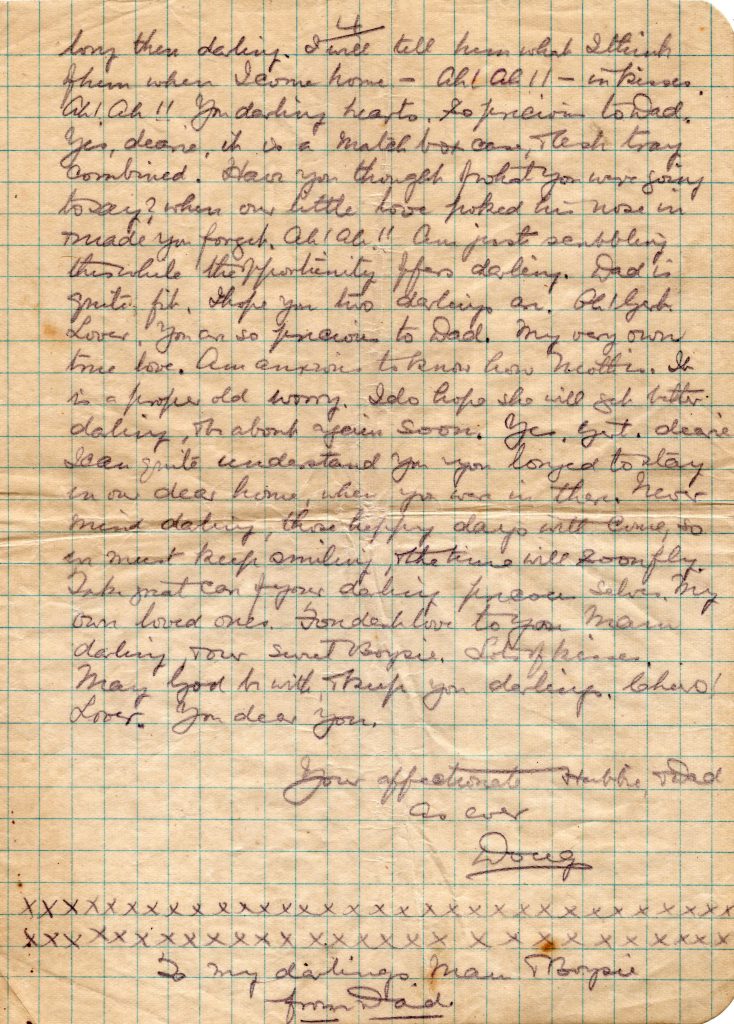 4
long then darling. I will tell him what I think
of him when I come home - Ah! Ah!! - in kisses.
Ah! Ah!! You darling hearts. So precious to Dad.
Yes, dearie, it is a match box case, & ash tray
combined. Have you thought of what you were going
to say? when our little love poked his nose in
& made you forget. Ah! Ah!! Am just scribbling
this while the opportunity offers darling. Dad is
quite fit. I hope you two darlings are. Ah! Gert.
Lover. You are so precious to Dad. My very own
true love. Am anxious to know how is. It
is a proper old worry. I do hope she will get better
darling, & be about again soon. Yes, Gert. dearie
I can quite understand you longed to stay
in our dear home, when you were in there. Never
mind darling, those happy days will come, so
we must keep smiling, & the time will soon fly.
Take great care of your darling precious selves. My
own loved ones. Fondest love to you Mam
darling, & our sweet Boysie. Lots of kisses.
May God be with, & keep you darlings. Cheero!
Lover. You dear you.
Your affectionate Hubbie, & Dad
As ever
Doug
XXXXXXXXXXXXXXXXXXXXXXXXXXXXXXXXX
XXXXXXXXXXXXXXXXXXXXXXXXXXXXXX
To my darlings Mam & Boysie
from Dad